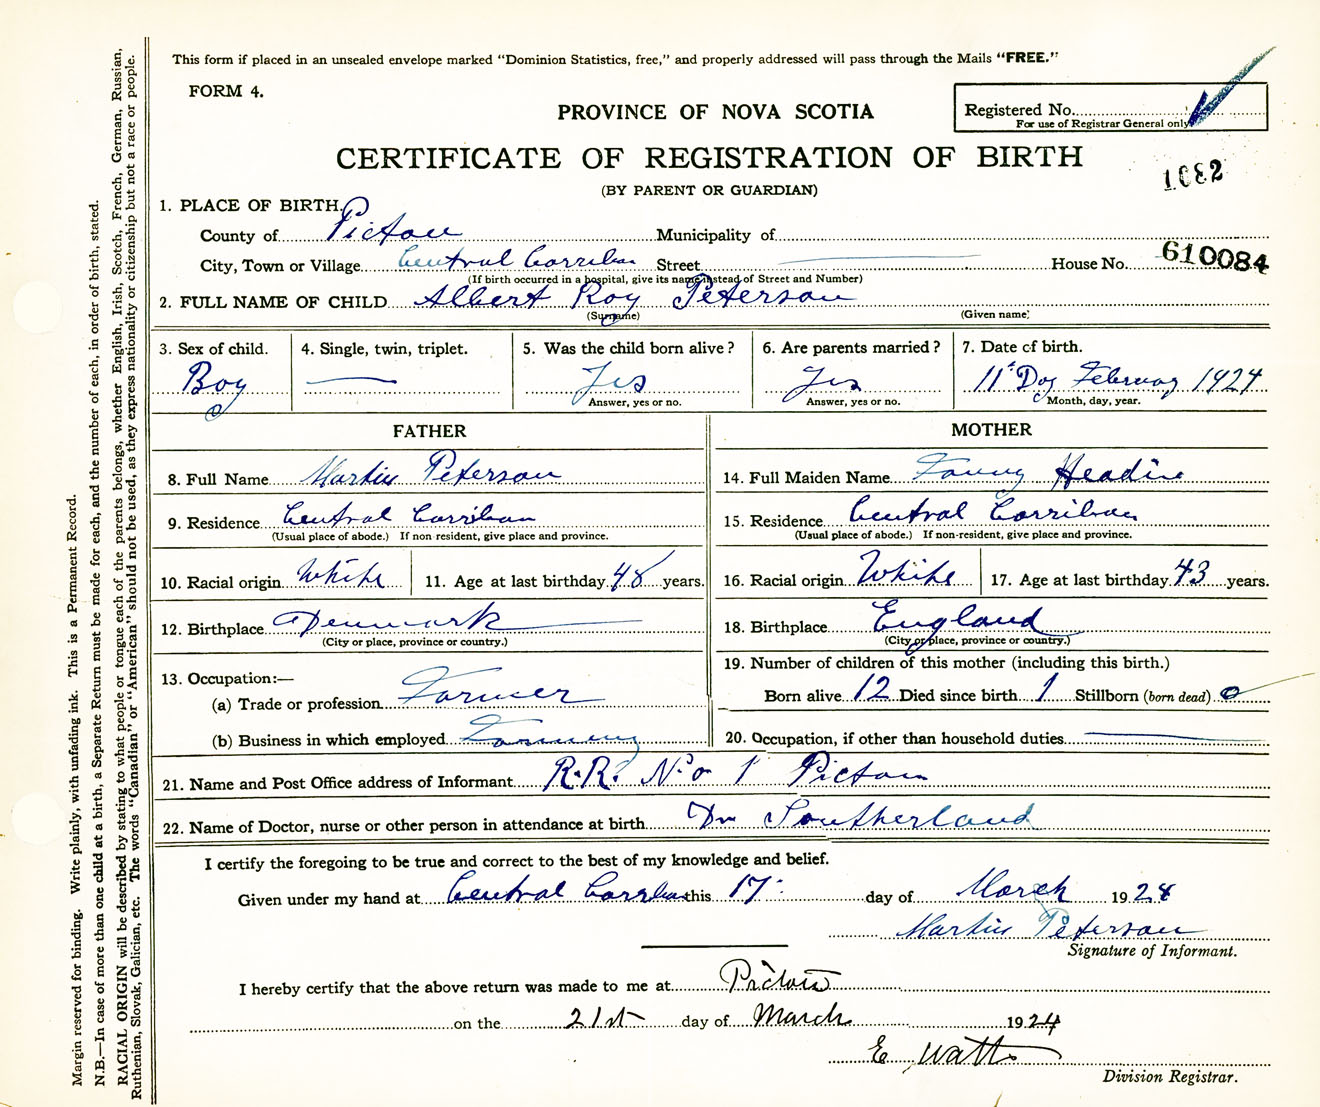 This form if placed in an unsealed envelope marked "Dominion Statistics, free," and properly addressed will pass through the Mails "FREE."
FORM 4.
PROVINCE OF NOVA SCOTIA
Registered No.
For use of Registrar General only
CERTIFICATE OF REGISTRATION OF BIRTH
1082
(BY PARENT OR GUARDIAN)
1. PLACE OF BIRTH.
County of Pictou Municipality of
City, Town or Village Central Carriboo Street House No. 610084
(If birth occurred in a hospital, give its name instead of Street and Number)
2. FULL NAME OF CHILD Albert Roy Peterson
(Surname) (Given name)
3. Sex of child. 4. Single, twin, triplet. 5. Was the child born alive? 6. Are parents married? 7. Date of birth.
Boy Yes Yes 11 Day February 1924
Answer, yes or no. Answer, yes or no. Month, day, year.
FATHER MOTHER
8. Full Name Martin Peterson 14. Full Maiden Name Fanny Headin
9. Residence Central Carriboo 15. Residence Central Carriboo
(Usual place of abode.) If non-resident, give place and province. (Usual place of abode.) If non-resident, give place and province.
10. Racial origin White 11. Age at last birthday 48 years. 16. Racial origin White 17. Age at last birthday 43 years.
12. Birthplace Denmark 18. Birthplace England
(City or place, province or country.) (City or place, province or country.)
13. Occupation:— 19. Number of children of this mother (including this birth.)
(a) Trade or profession Farmer Born alive 12 Died since birth 1 Stillborn (born dead) 0
(b) Business in which employed Farming 20. Occupation, if other than household duties
21. Name and Post Office address of Informant R.R. No 1 Pictou
22. Name of Doctor, nurse or other person in attendance at birth Dr Southerland
I certify the foregoing to be true and correct to the best of my knowledge and belief.
Given under my hand at Central Carriboo this 17 day of March 1924
Martin Peterson
Signature of Informant.
I hereby certify that the above return was made to me at Pictou
on the 21st day of March 1924
E Watts
Division Registrar.
Margin reserved for binding. Write plainly, with unfading ink. This is a Permanent Record.
N.B.—In case of more than one child at a birth, a Separate Return must be made for each, and the number of each, in order of birth, stated.
RACIAL ORIGIN will be described by stating to what people or tongue each of the parents belongs, whether English, Irish, Scotch, French, German, Russian,
Ruthenian, Slovak, Galician, etc. The words "Canadian" or "American" should not be used, as they express nationality or citizenship but not a race or people.